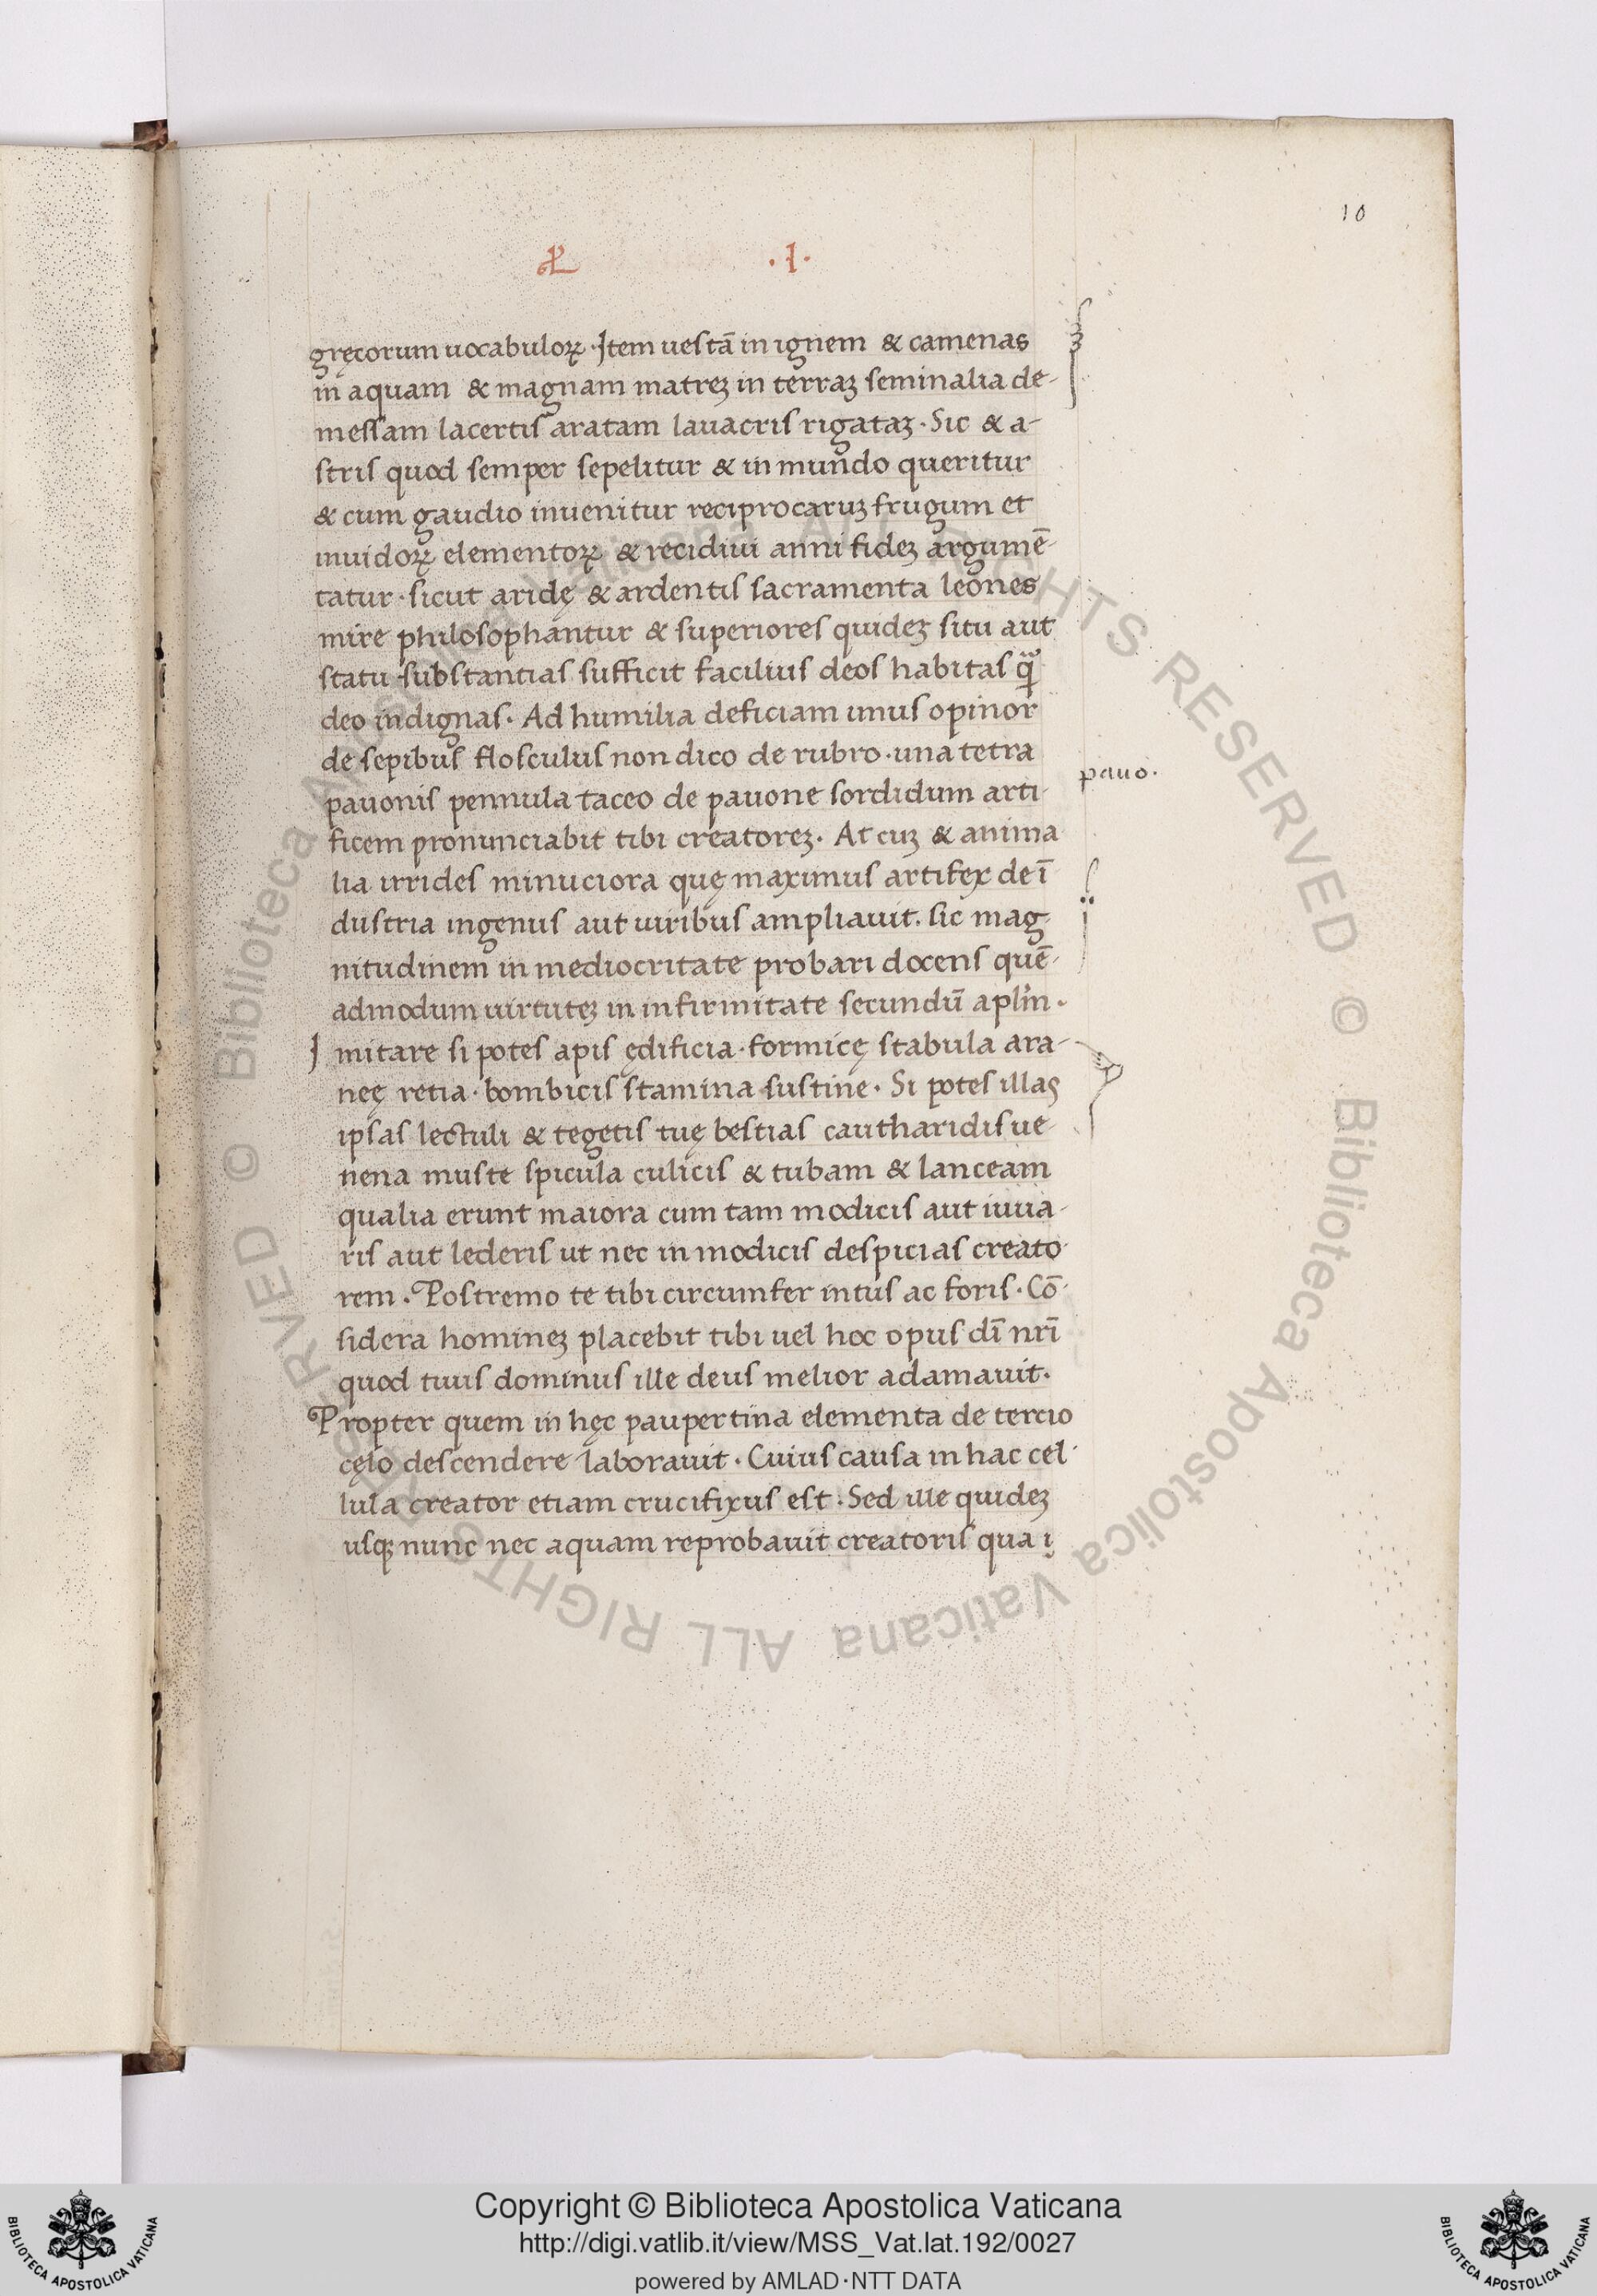 10
.I.
gręcorum uocabuloꝝ. Item uestā in ignem & camenas
in aquam & magnam matreꝫ in terraꝫ seminalia de-
messam lacertis aratam lauacris rigataꝫ. Sic & a-
stris quod semper sepelitur & in mundo queritur
& cum gaudio inuenitur reciprocaruꝫ frugum et
inuidoꝝ elementoꝝ & recidiui anni fideꝫ argumē-
tatur. sicut aridę & ardentis sacramenta leones
mire philosophantur & superiores quideꝫ situ aut
statu substantias sufficit facilius deos habitas
deo indignas. Ad humilia deficiam unus opinor
de sepibus flosculus non dico de rubro. una tetra
pauo.
pauonis pennula taceo de pauone sordidum arti-
ficem pronunciabit tibi creatoreꝫ. At cuꝫ & anima
lia irrides minuciora quę maximus artifex de ī
dustria ingenus aut uiribus ampliauit. sic mag-
nitudinem in mediocritate probari docens quē-
admodum uirtuteꝫ in infirmitate secundū aplm̄.
I mitare si potes apis ędificia. formicę stabula ara-
neę retia. bombicis stamina sustine. Si potes illas
ipsas lectuli & tegetis tuę bestias cautharidis ue-
nena muste spicula culicis & tubam & lanceam
qualia erunt maiora cum tam modicis aut iuua-
ris aut lederis ut nec in modicis despicias creato-
rem. Postremo te tibi circumfer intus ac foris. Cō-
sidera homineꝫ placebit tibi uel hoc opus dī nrī
quod tuus dominus ille deus melior adamauit.
Propter quem in hęc paupertina elementa de tercio
cęlo descendere laborauit. Cuius causa in hac cel-
lula creator etiam crucifixus est. Sed ille quideꝫ
usqꝫ nunc nec aquam reprobauit creatoris qua
© Biblioteca Apostolica Vaticana ALL RIGHTS RESERVED © Biblioteca Apostolica Vaticana ALL RIGHTS RESERVED
Copyright © Biblioteca Apostolica Vaticana
http://digi.vatlib.it/view/MSS_Vat.lat.192/0027
powered by AMLAD·NTT DATA
BIBLIOTECA APOSTOLICA VATICANA
BIBLIOTECA APOSTOLICA VATICANA